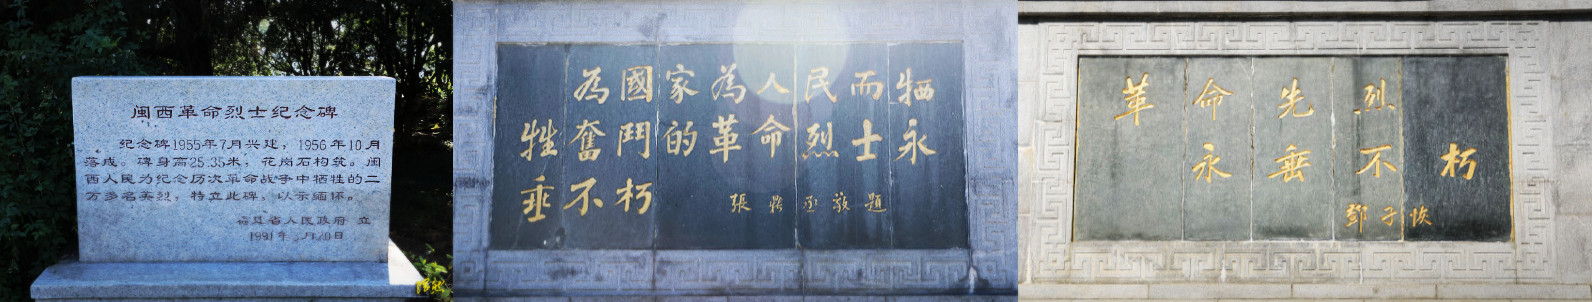 闽西革命烈士纪念碑
纪念碑1955年7月兴建，1956年10月
落成。碑身高25.35米，花岗石构筑。闽
西人民为纪念历次革命战争中牺牲的二
万多名英烈，特立此碑，以示缅怀。
福建省人民政府 立
1991年 月20日
為國家為人民而牺
牲奮鬥的革命烈士永
垂不朽 張鼎丞敬題
革命先烈
永垂不朽
鄧子恢